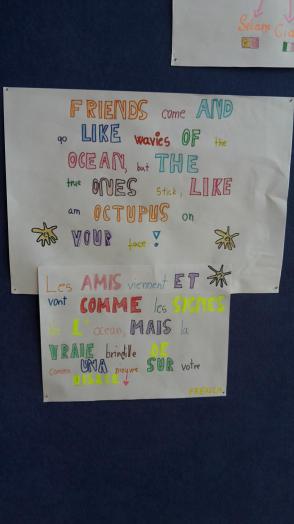 FRIENDS come AND
go LIKE wavies OF the
OCEAN, but THE
true ONES stick, LIKE
am OCTUPUS on
YOUR face!
Les AMIS viennent ET
vont COMME les SIGNES
de L' ocean, MAIS la
VRAIE brindille DE
comme UNA pieuvre SUR votre
FRENCH